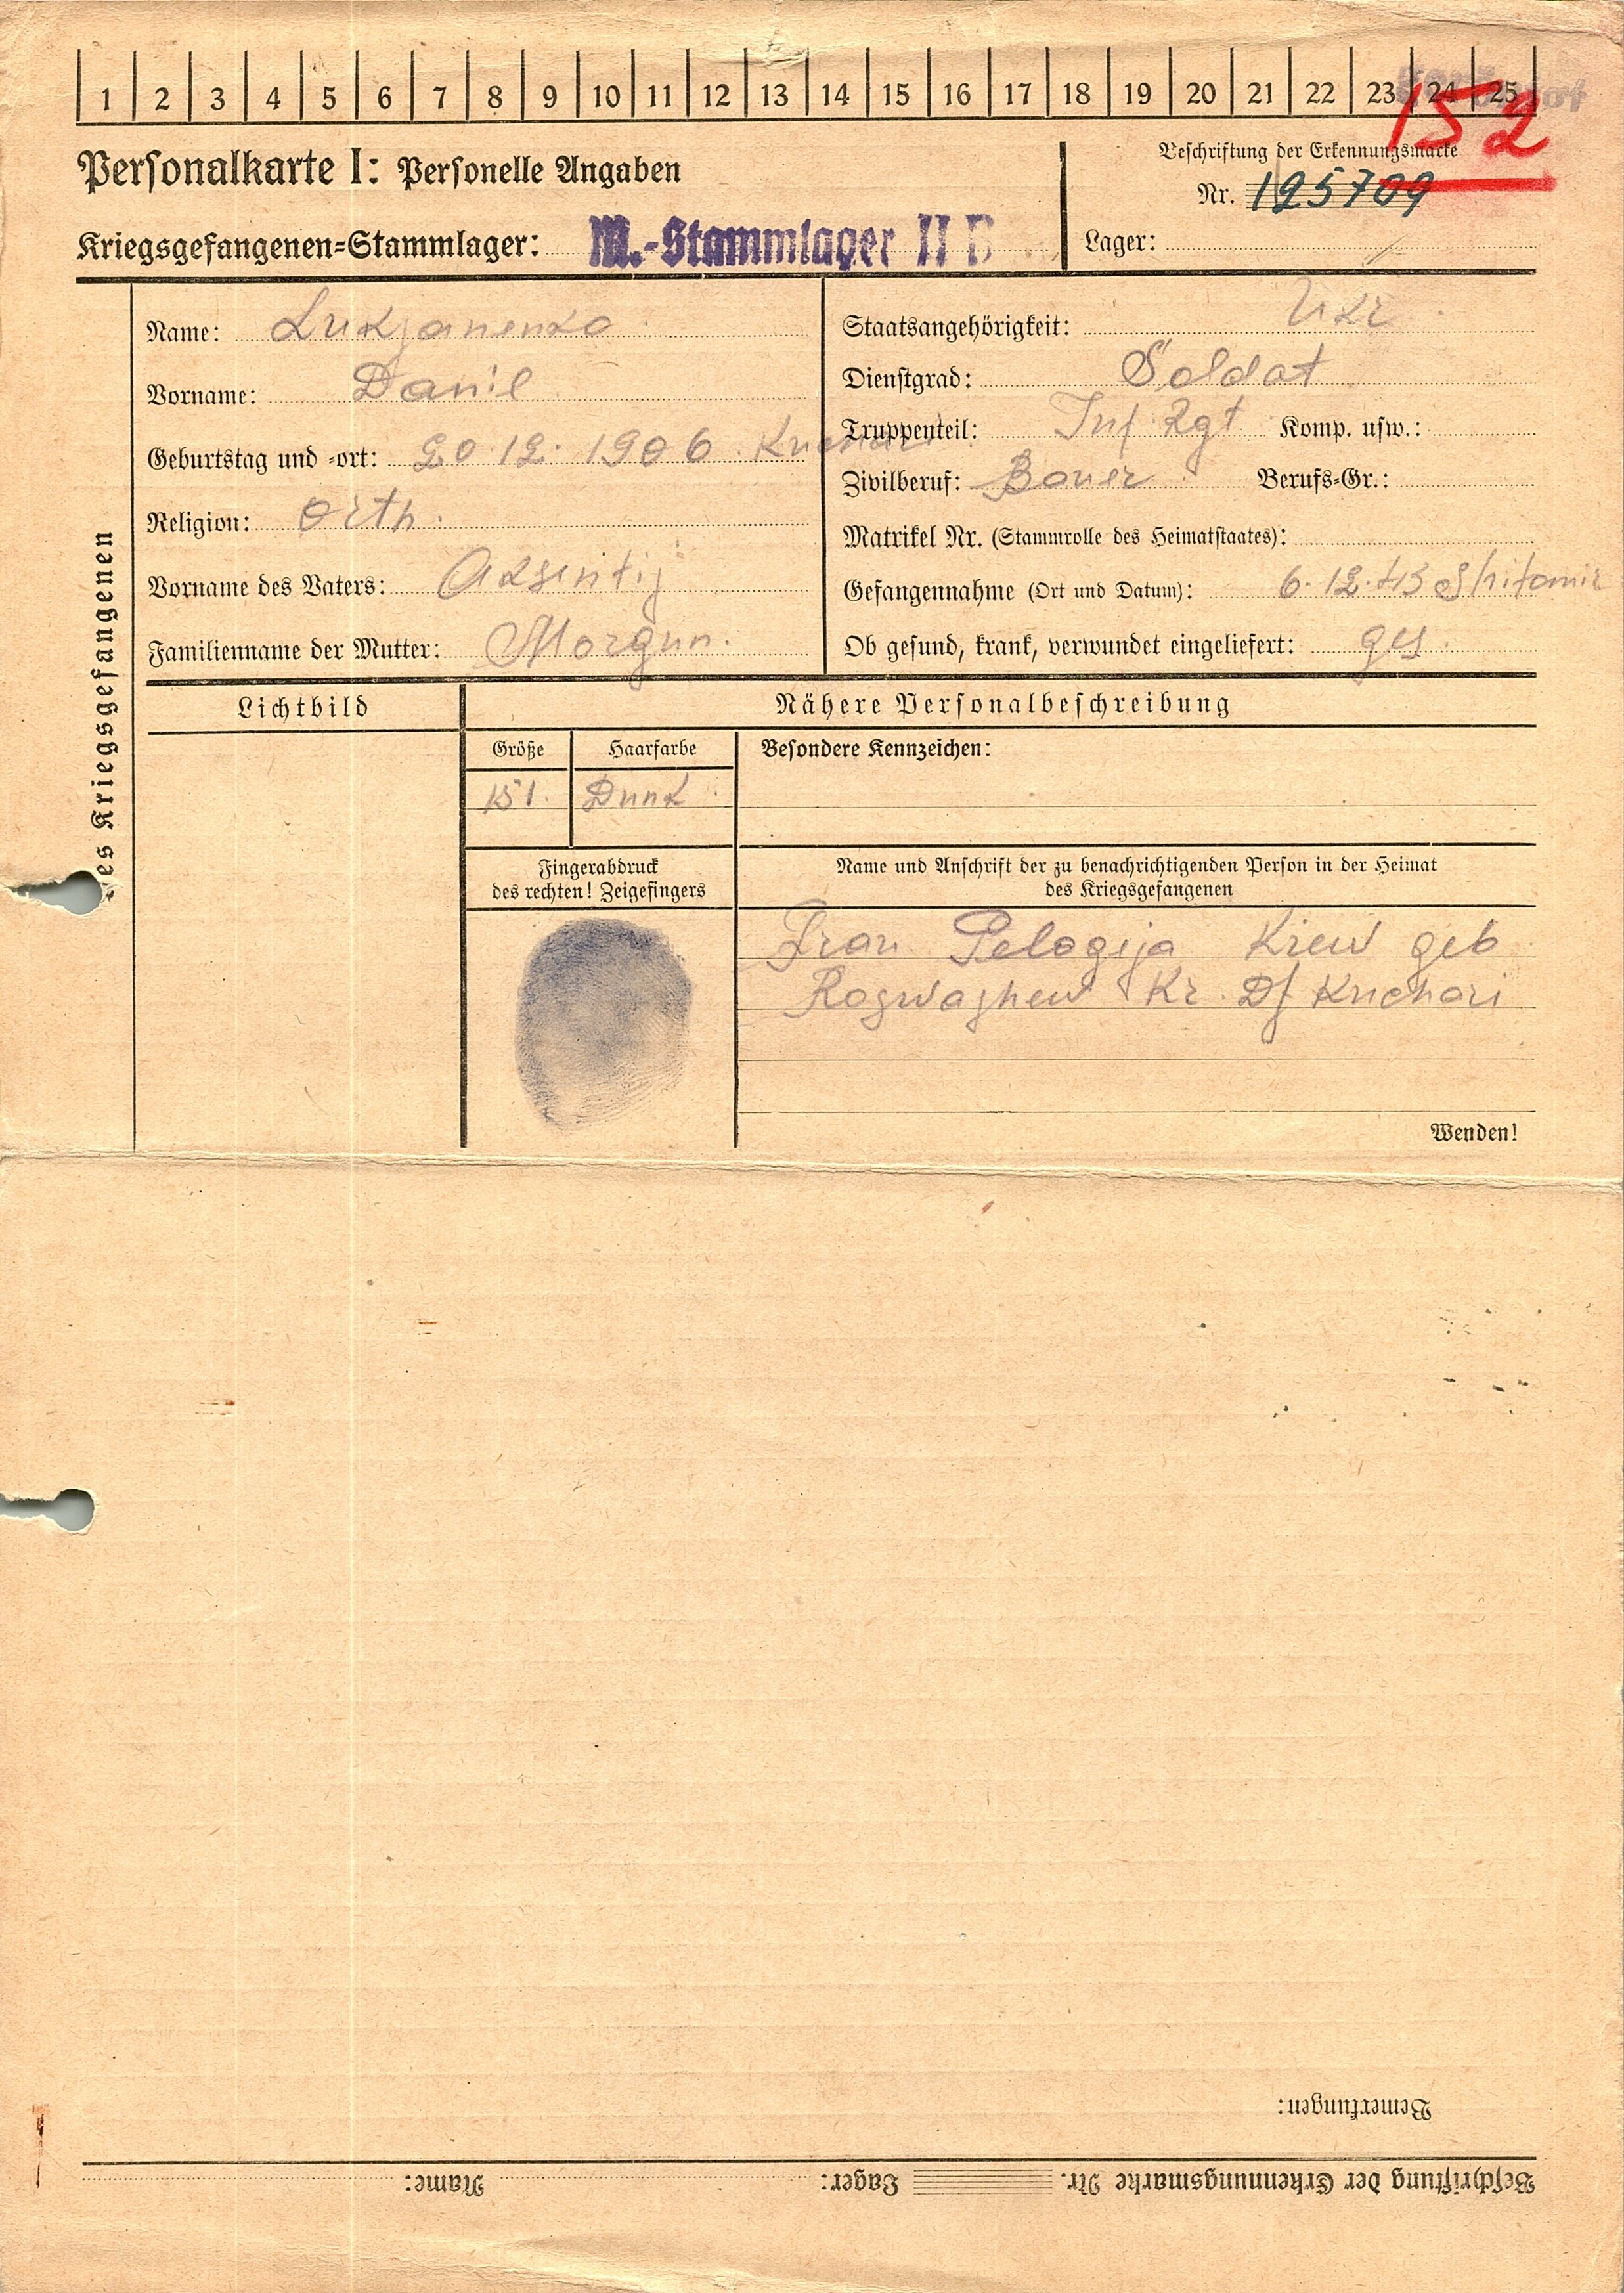 1 2 3 4 5 6 7 8 9 10 11 12 13 14 15 16 17 18 19 20 21 22 23 24 25
152
Personalkarte I: Personelle Angaben
Beschriftung der Erkennungsmarke
Nr. 125709
Kriegsgefangenen-Stammlager: M.-Stammlager II B
Lager:
des Kriegsgefangenen
Name: Lukjanenko
Vorname: Danil
Geburtstag und -ort: 20.12.1906. Kuchari
Religion: Orth.
Vorname des Vaters: Aksintij
Familienname der Mutter: Morgun.
Staatsangehörigkeit: Ukr.
Dienstgrad: Soldat
Truppenteil: Inf. Rgt Komp. usw.:
Zivilberuf: Bauer Berufs-Gr.:
Matrikel Nr. (Stammrolle des Heimatstaates):
Gefangennahme (Ort und Datum): 6.12.43 Shitomir
Ob gesund, krank, verwundet eingeliefert: ges.
Lichtbild
Nähere Personalbeschreibung
Größe Haarfarbe Besondere Kennzeichen:
151. Dunk.
Fingerabdruck
des rechten! Zeigefingers
Name und Anschrift der zu benachrichtigenden Person in der Heimat
des Kriegsgefangenen
Frau Pelogeja Kiew geb
Roswashew Kr. Df Kuchari
Wenden!
Bemerkungen:
Beschriftung der Erkennungsmarke Nr. Lager: Name: